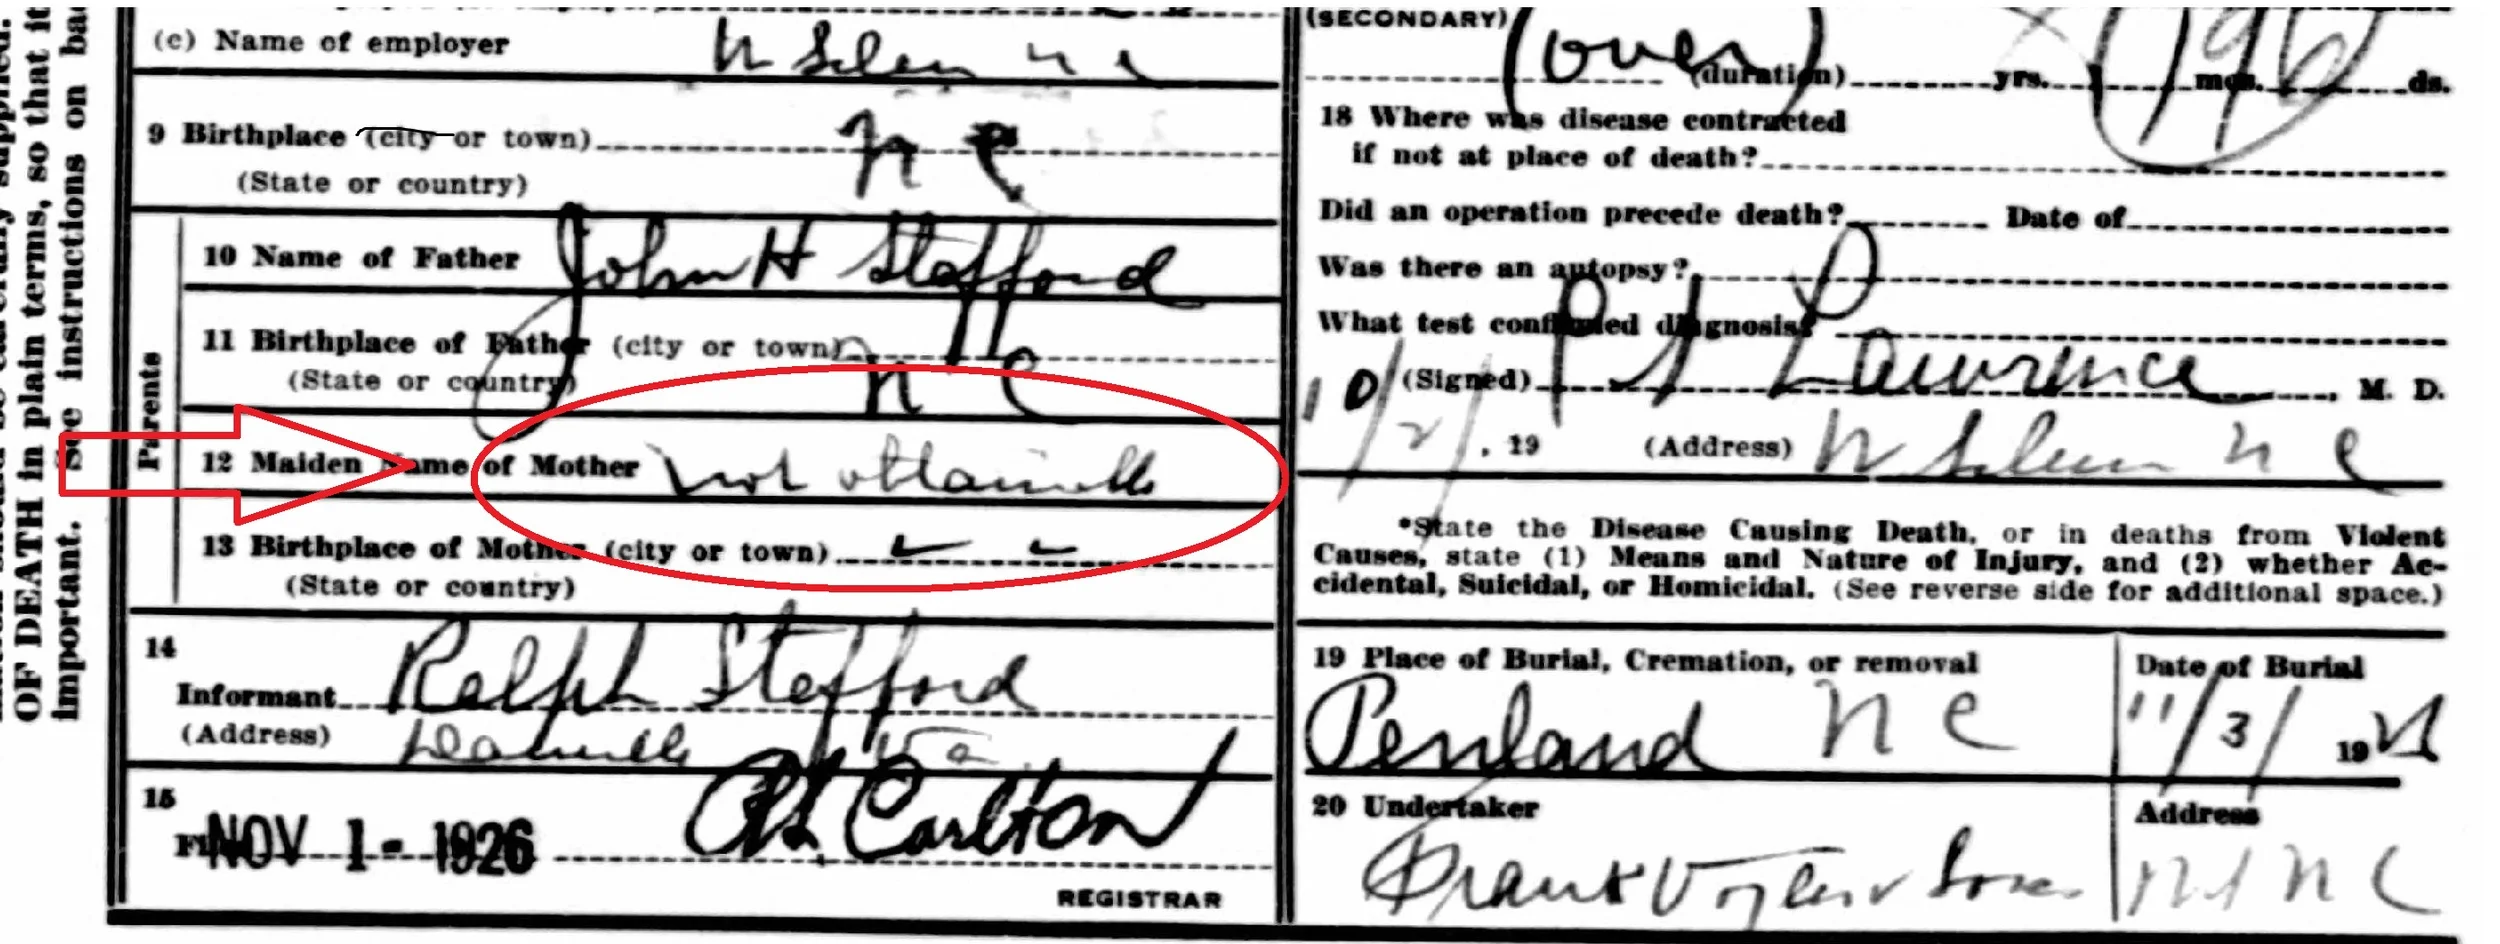 OF DEATH in plain terms, so that it
important. See instructions on bac
(c) Name of employer W Salem N C
9 Birthplace (city or town) N C
(State or country)
Parents
10 Name of Father John H Stafford
11 Birthplace of Father (city or town) N C
(State or country)
12 Maiden Name of Mother not obtainable
13 Birthplace of Mother (city or town)
(State or country)
14
Informant Ralph Stafford
(Address) Danville Va
15
NOV 1 - 1926 Carlton
REGISTRAR
(SECONDARY) (over)
(duration) yrs. mos. ds.
18 Where was disease contracted
if not at place of death?
Did an operation precede death? Date of
Was there an autopsy?
What test confirmed diagnosis?
(Signed) Lawrence, M. D.
, 19 (Address) W Salem N C
*State the Disease Causing Death, or in deaths from Violent
Causes, state (1) Means and Nature of Injury, and (2) whether Ac-
cidental, Suicidal, or Homicidal. (See reverse side for additional space.)
19 Place of Burial, Cremation, or removal
Penland N C
Date of Burial
11/3/ 19
20 Undertaker
Frank Vogler & Sons
Address
W S N C